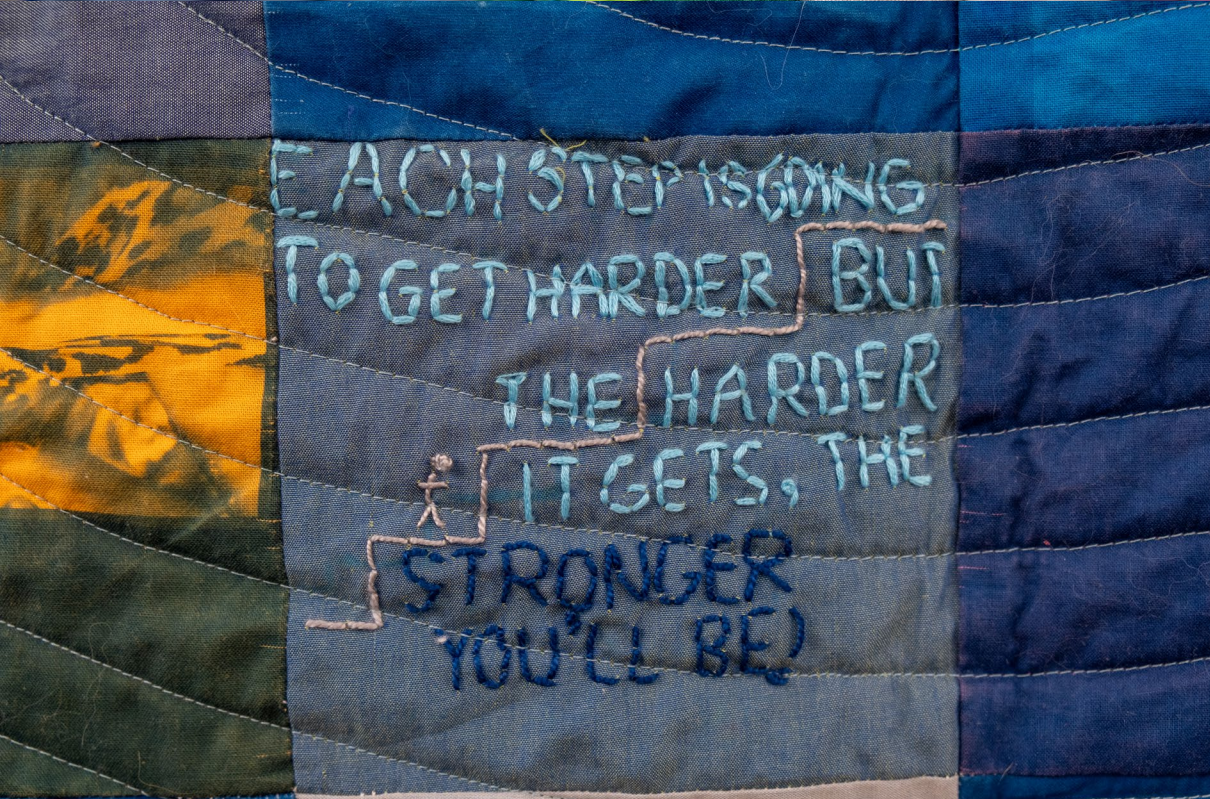 EACH STEP IS GOING
TO GET HARDER BUT
THE HARDER
IT GETS, THE
STRONGER
YOU'LL BE)